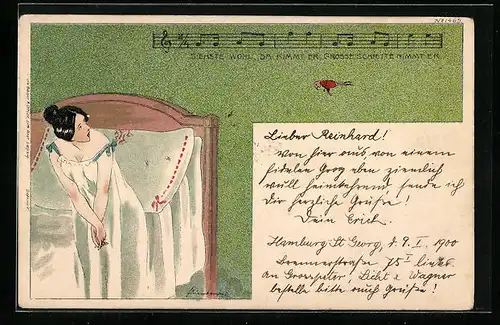 No 1465.
SIEHSTE WOHL, DA KIMMT ER, GROSSE SCHRITTE NIMMT ER
Lieber Reinhard!
Von hier aus, von einem
fidelen Grog eben ziemlich
voll heimkehrend, sende ich
Dir herzliche Grüße!
Dein Erich.
Hamburg-St. Georg, d. 9. I. 1900
Bremerstraße 75 I links
An Grosspeter, Licht & Wagner
bestelle bitte auch Grüße!